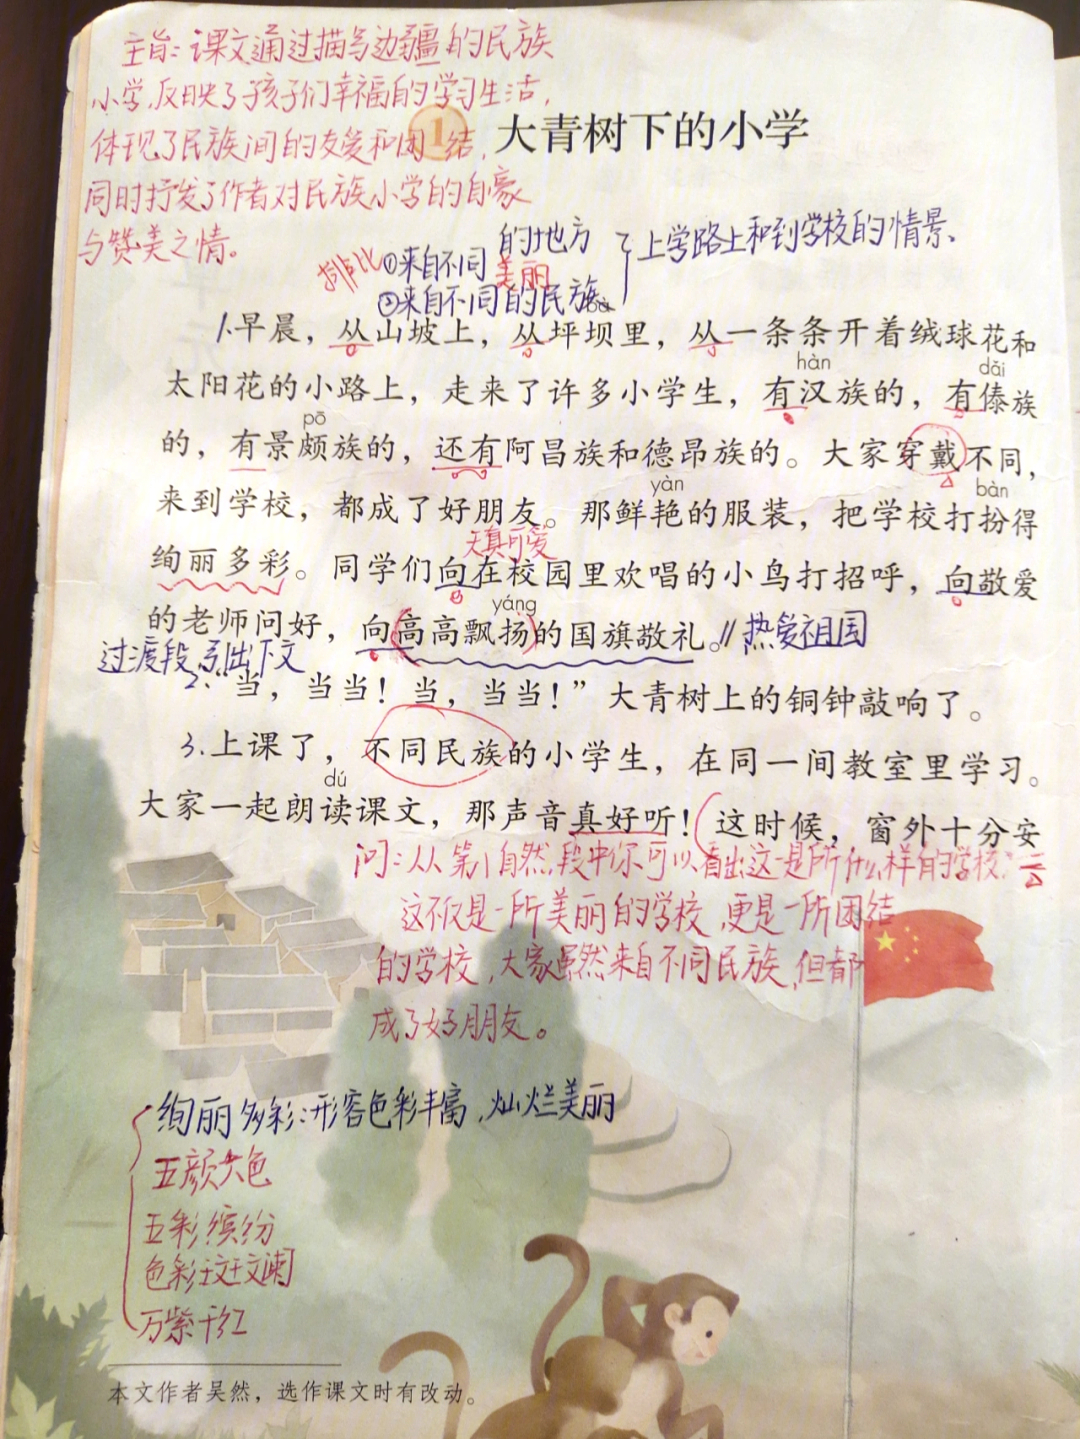 主旨：课文通过描写边疆的民族
小学，反映了孩子们幸福的学习生活，
体现了民族间的友爱和团结，
同时抒发了作者对民族小学的自豪
与赞美之情。
1 大青树下的小学
排比 ①来自不同的地方
美丽
②来自不同的民族
上学路上和到学校的情景、
1.早晨，从山坡上，从坪坝里，从一条条开着绒球花和
hàn dǎi
太阳花的小路上，走来了许多小学生，有汉族的，有傣族
pō
的，有景颇族的，还有阿昌族和德昂族的。大家穿戴不同，
yàn bàn
来到学校，都成了好朋友。那鲜艳的服装，把学校打扮得
天真可爱
绚丽多彩。同学们向在校园里欢唱的小鸟打招呼，向敬爱
yáng
的老师问好，向高高飘扬的国旗敬礼。// 热爱祖国
过渡段，引出下文
2.“当，当当！当，当当！”大青树上的铜钟敲响了。
3.上课了，不同民族的小学生，在同一间教室里学习。
dú
大家一起朗读课文，那声音真好听！这时候，窗外十分安
问：从第1自然段中你可以看出这是所什么样的学校？
这不仅是一所美丽的学校，更是一所团结
的学校，大家虽然来自不同民族，但都
成了好朋友。
绚丽多彩：形容色彩丰富，灿烂美丽
五颜六色
五彩缤纷
色彩斑斓
万紫千红
本文作者吴然，选作课文时有改动。